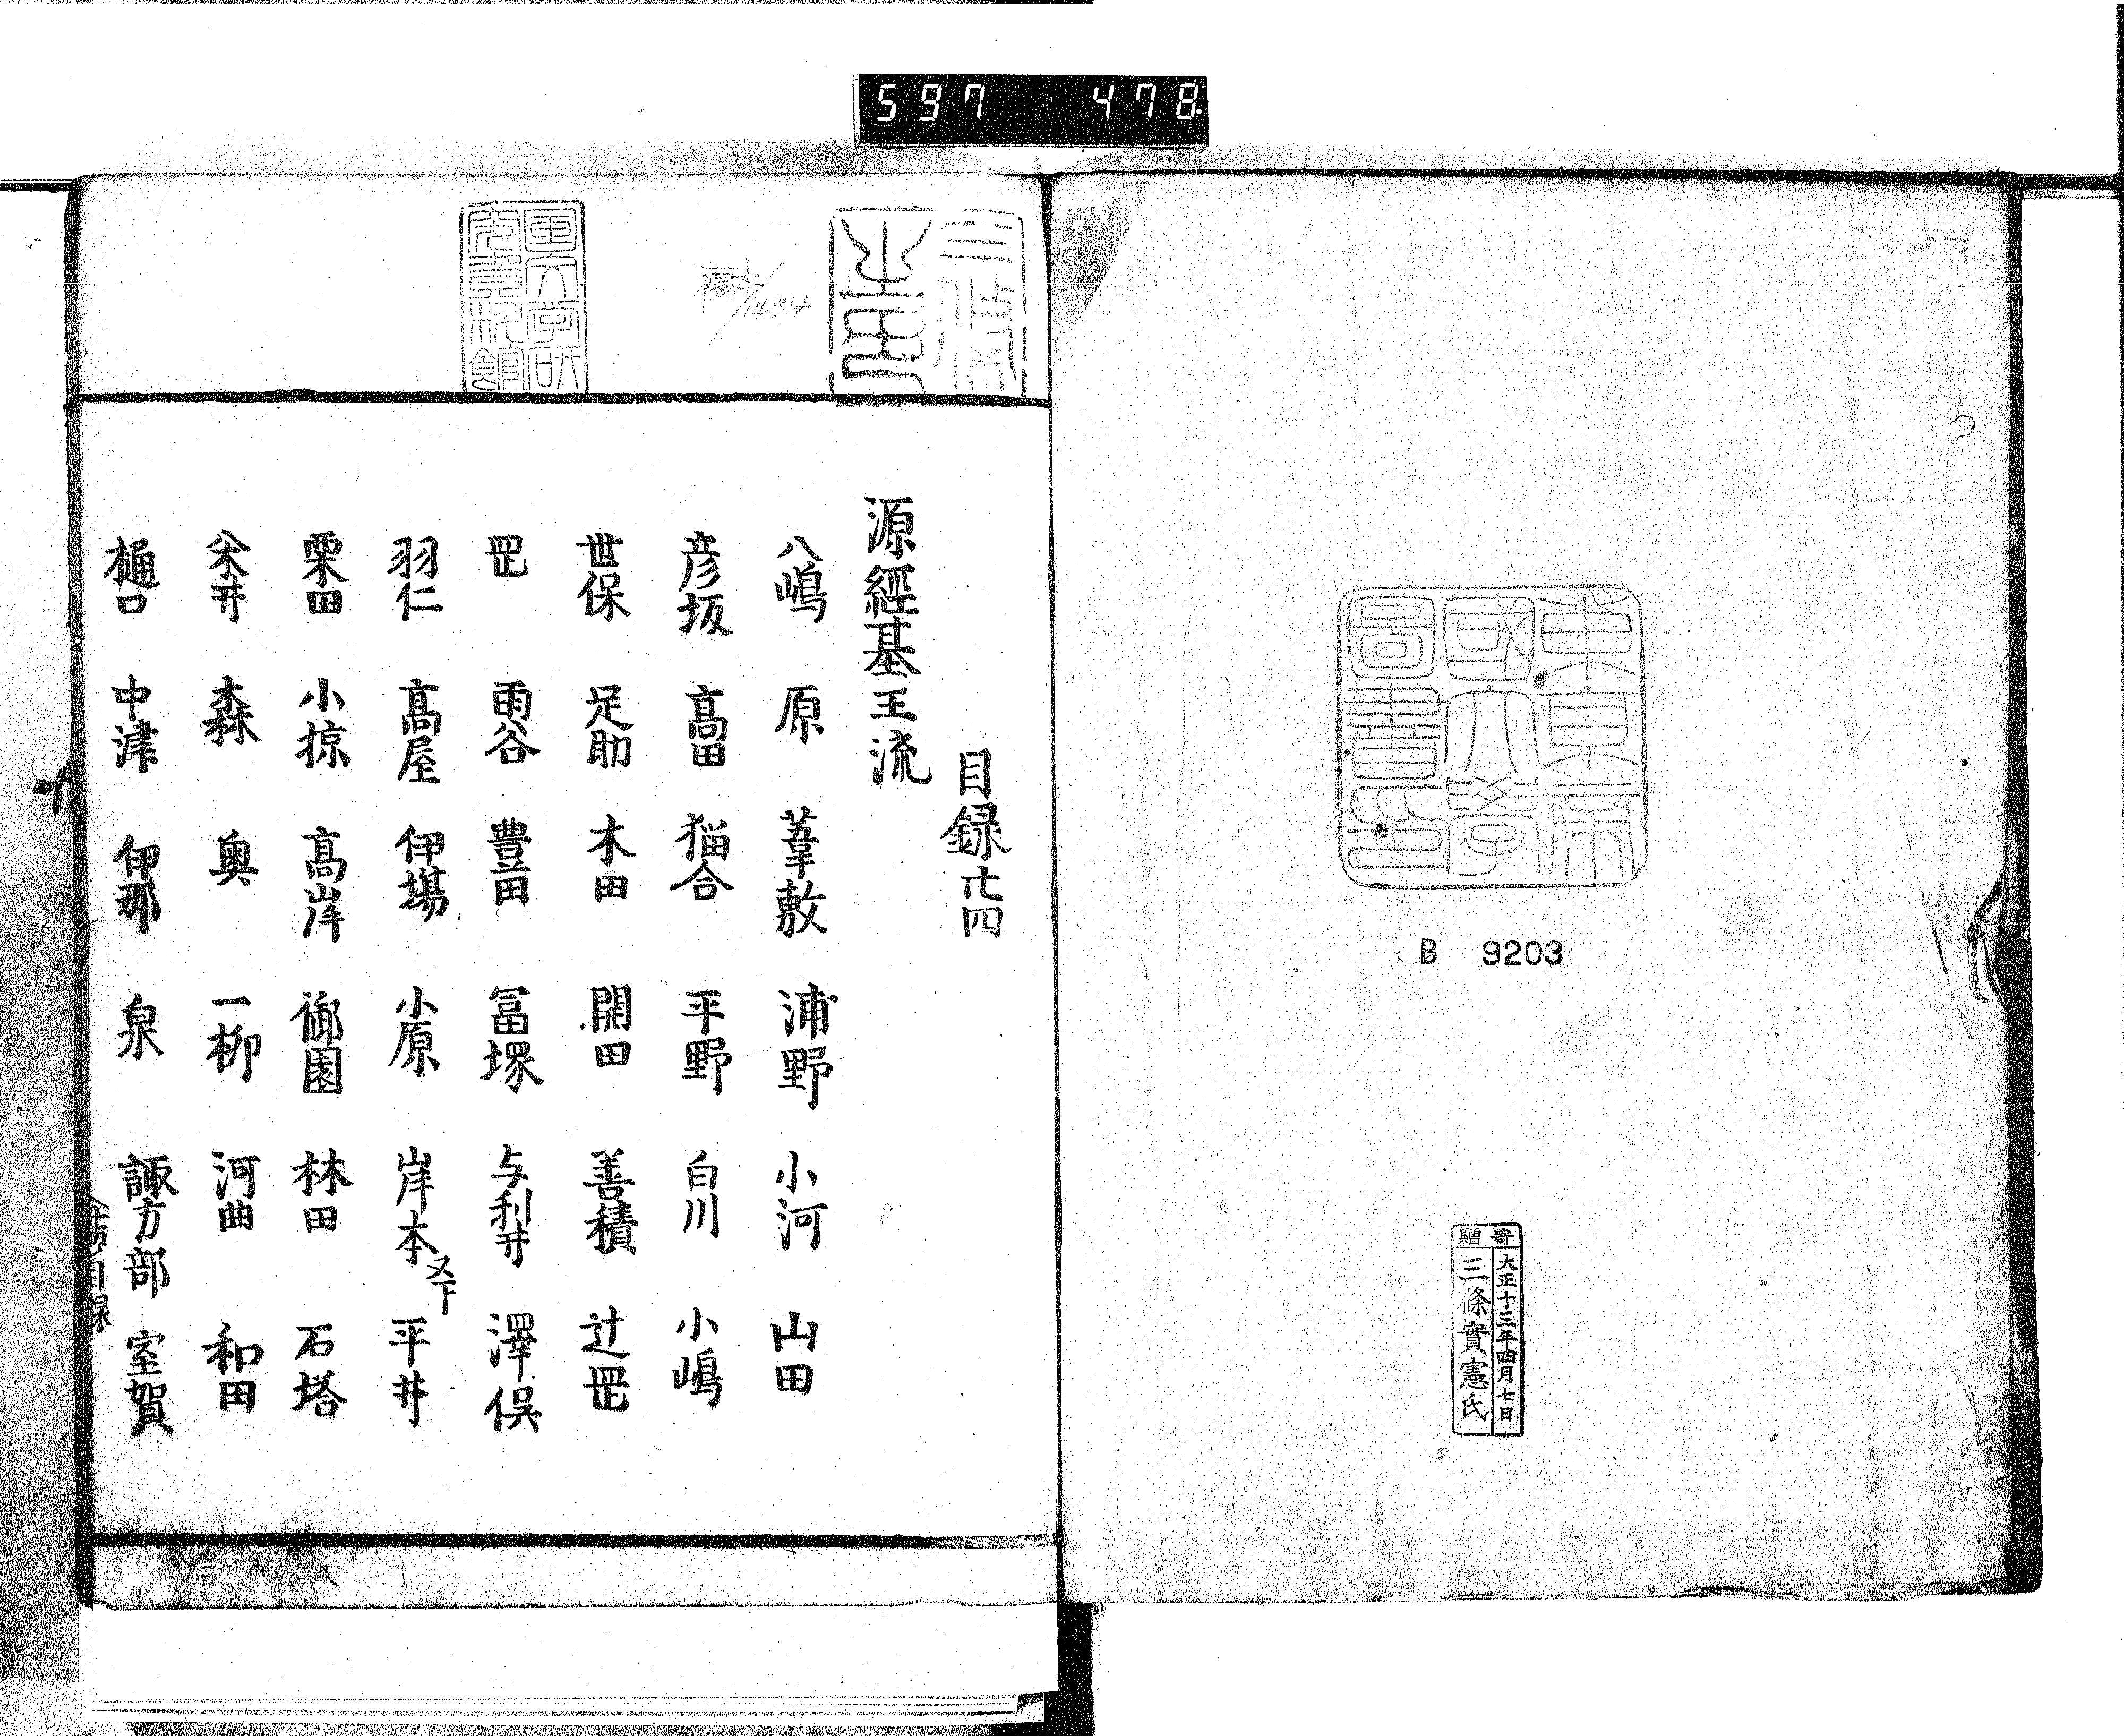 597 478
東京帝
國大學
圖書印
B 9203
寄贈
大正十三年四月七日
三條實憲氏
1434
目録廿四
源經基王流
八嶋 原 葦敷 浦野 小河 山田
彦坂 高田 猫合 平野 白川 小嶋
世保 足助 木田 開田 善積 辻罡
罡 雨谷 豊田 冨塚 与利井 澤俣
羽仁 髙屋 伊場 小原 岸本 又下 平井
栗田 小掠 髙岸 御園 林田 石塔
米井 森 奥 一柳 河曲 和田
樋口 中津 伊那 泉 諏方部 室賀